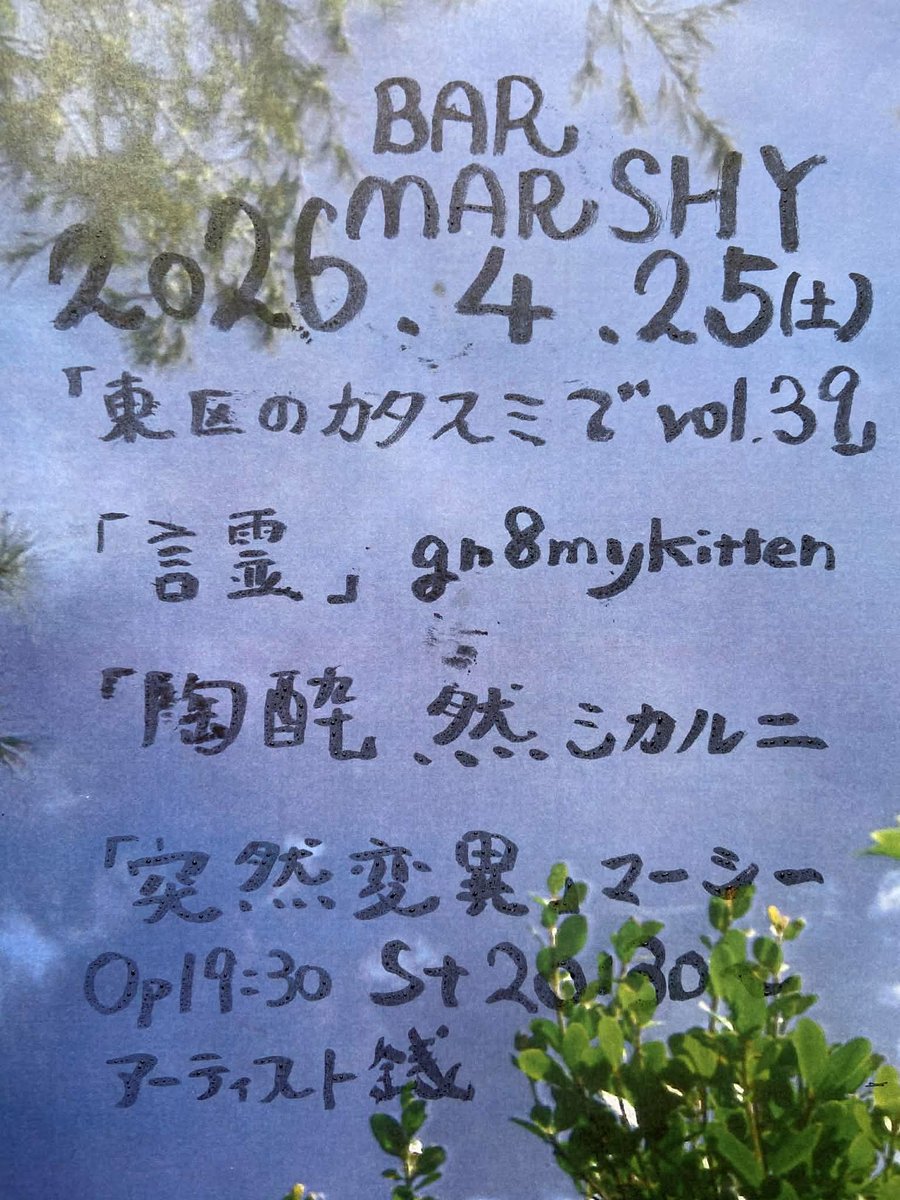 BAR
MARSHY
2026.4.25(土)
「東区のカタスミで vol.39」
「言霊」gn8mykitten
「陶酔 然 シカルニ
「突然変異」マーシー
Op19:30 St 20:30〜
アーティスト銭